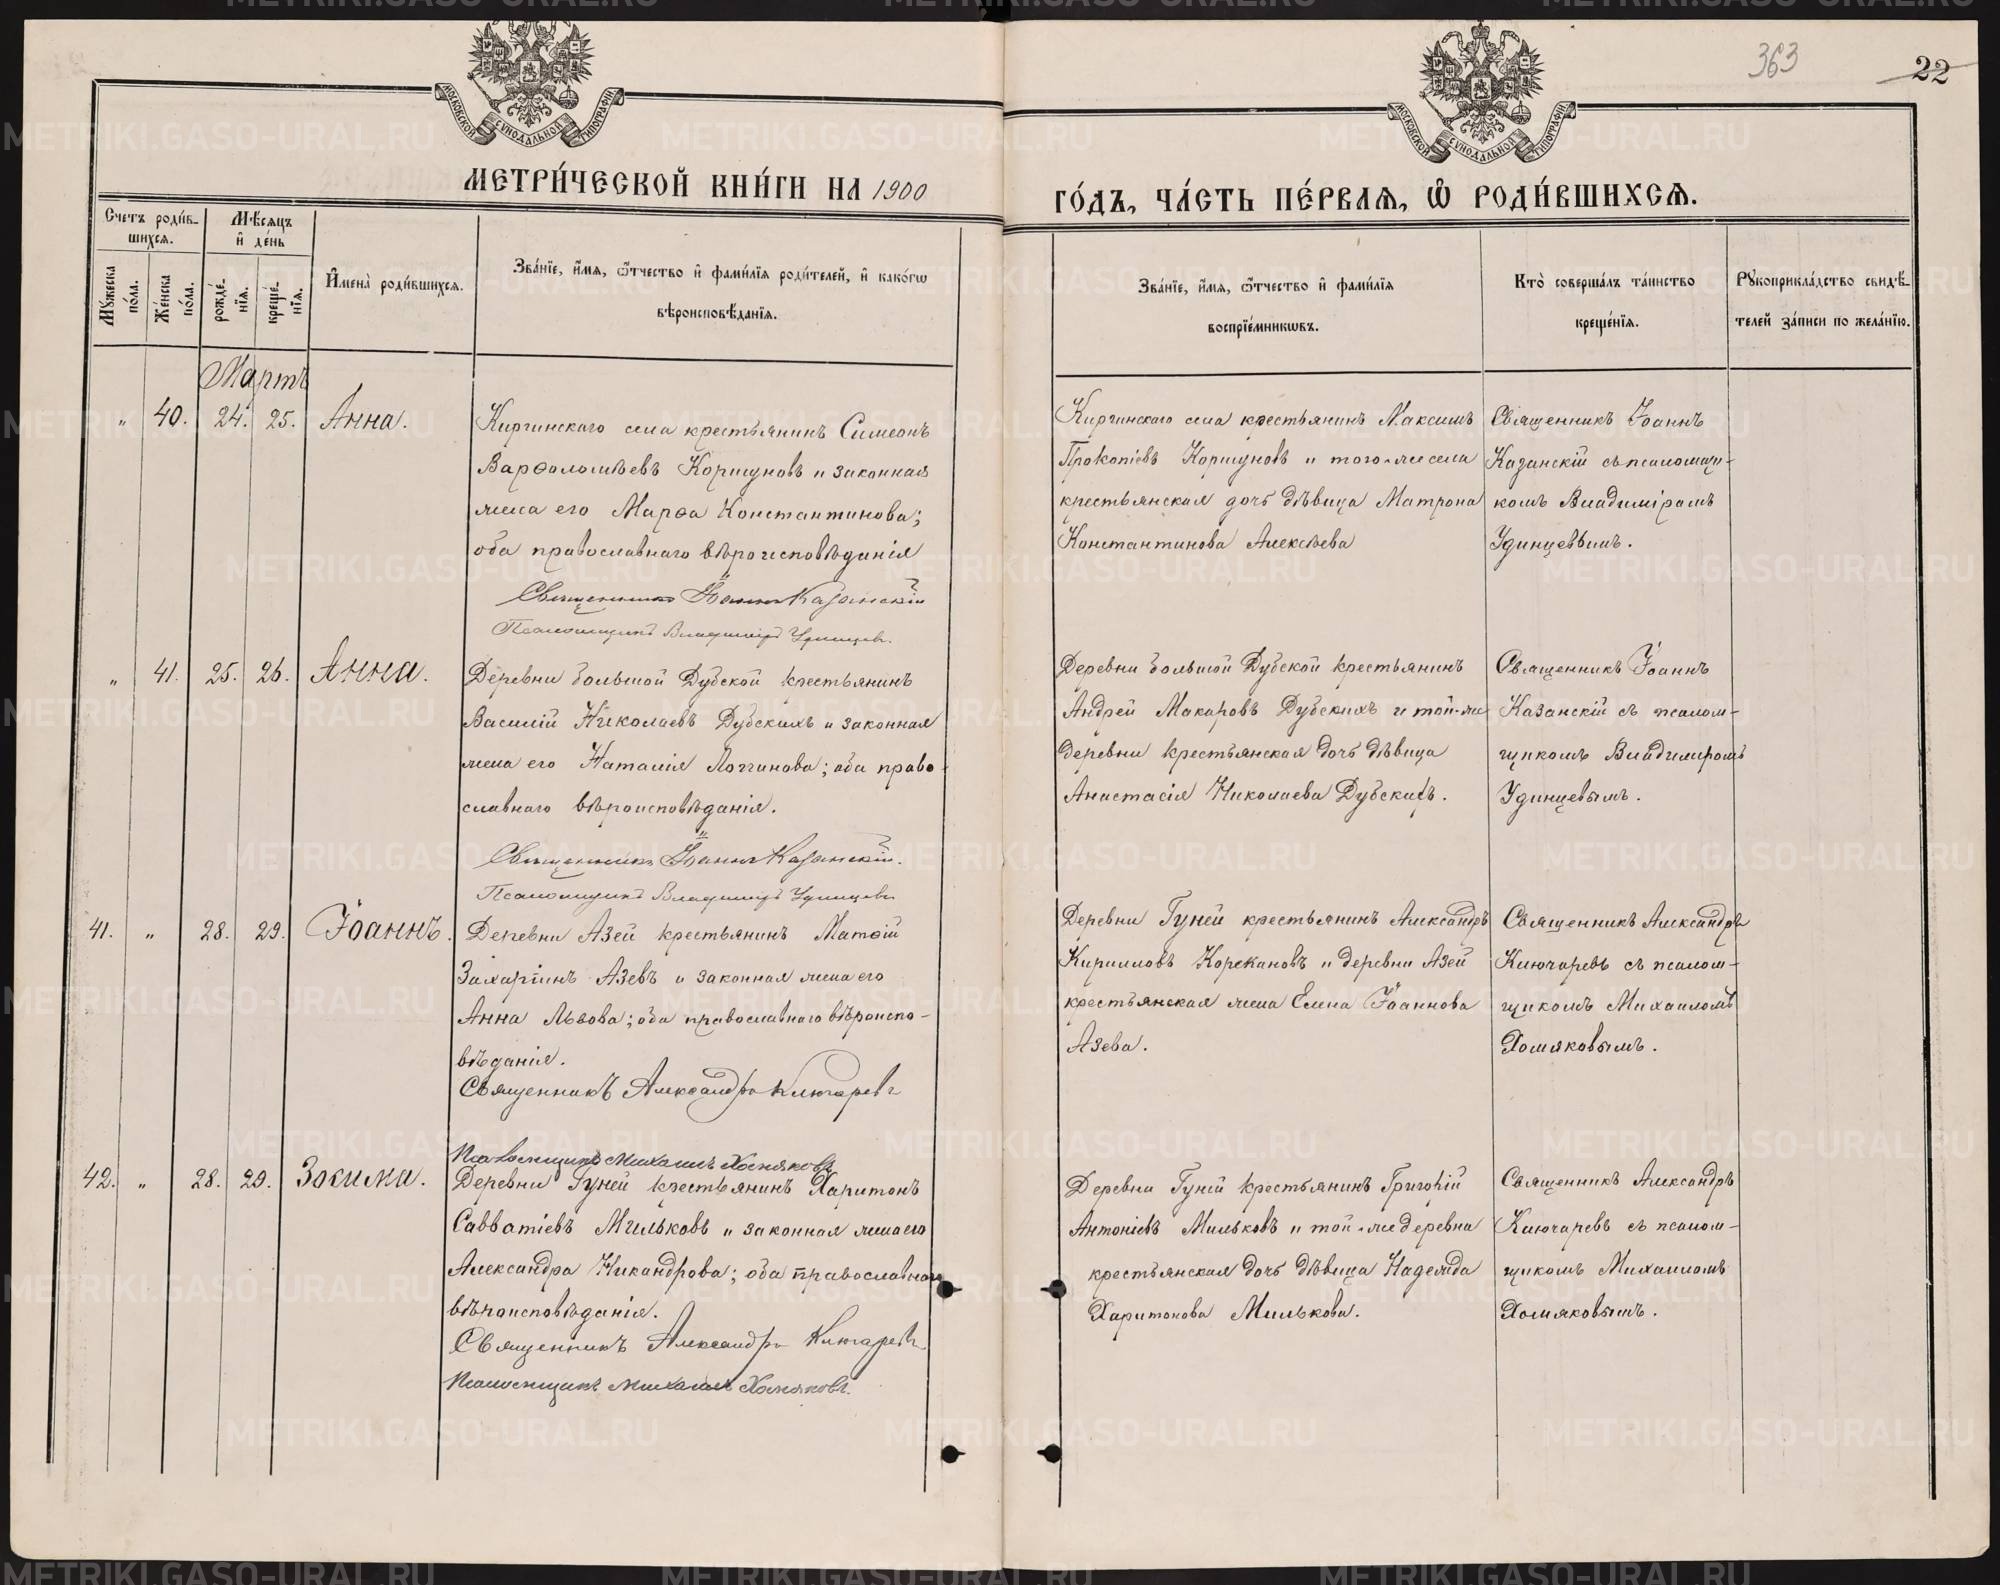 363
22
МОСКОВСКОЙ СѴНОДАЛЬНОЙ ТИПОГРАФІИ
МОСКОВСКОЙ СѴНОДАЛЬНОЙ ТИПОГРАФІИ
МЕТРИ́ЧЕСКОЙ КНИ́ГИ НА 1900
ГО́ДЪ, ЧА́СТЬ ПЕ́РВАѦ, Ѽ РОДИ́ВШИХСѦ.
Счетъ роди́в-
шихсѧ.
Мѣсѧцъ
и де́нь
Мꙋжеска
по́ла.
Же́нска
по́ла.
рожде́-
нїѧ.
креще́-
нїѧ.
Имена̀ роди́вшихсѧ.
Зва́нїе, и́мѧ, ѻ́тчество и фами́лїѧ роди́телей, и како́гѡ
вѣроисповѣ́данїѧ.
Зва́нїе, и́мѧ, ѻ́тчество и фами́лїѧ
воспрїе́мникѡвъ.
Кто̀ соверша́лъ та́инство
креще́нїѧ.
Рꙋкоприкла́дство свидѣ́-
телей за́писи по жела́нїю.
Мартъ
" 40. 24. 25. Анна.
Киргинскаго села крестьянинъ Симеонъ
Варѳоломѣевъ Коршуновъ и законная
жена его Марѳа Константинова;
оба православнаго вѣроисповѣданія
Священникъ Іоаннъ Казанскій
Псаломщикъ Владимиръ Удинцевъ.
Киргинскаго села крестьянинъ Максимъ
Прокопіевъ Коршуновъ и того-же села
крестьянская дочь дѣвица Матрона
Константинова Алексѣева
Священникъ Іоаннъ
Казанскій съ псаломщи-
комъ Владиміромъ
Удинцевымъ.
" 41. 25. 26. Анна.
Деревни большой Дубской крестьянинъ
Василій Николаевъ Дубскихъ и законная
жена его Наталія Логгинова; оба право-
славнаго вѣроисповѣданія.
Священникъ Іоаннъ Казанскій.
Псаломщикъ Владимиръ Удинцевъ
Деревни большой Дубской крестьянинъ
Андрей Макаровъ Дубскихъ и той-же
деревни крестьянская дочь дѣвица
Анастасія Николаева Дубскихъ.
Священникъ Іоаннъ
Казанскій съ псалом-
щикомъ Владимиромъ
Удинцевымъ.
41. " 28. 29. Іоаннъ.
Деревни Азей крестьянинъ Матѳій
Захаріинъ Азевъ и законная жена его
Анна Львова; оба православнаго вѣроиспо-
вѣданія.
Священникъ Александръ Ключаревъ
Псаломщикъ Михаилъ Хомяковъ
Деревни Гуней крестьянинъ Александръ
Кирилловъ Корекановъ и деревни Азей
крестьянская жена Елена Іоаннова
Азева.
Священникъ Александръ
Ключаревъ съ псалом-
щикомъ Михаиломъ
Хомяковымъ.
42. " 28. 29. Зосима.
Деревни Гуней крестьянинъ Харитонъ
Савватіевъ Мильковъ и законная жена его
Александра Никандрова; оба православнаго
вѣроисповѣданія.
Священникъ Александръ Ключаревъ
Псаломщикъ Михаилъ Хомяковъ.
Деревни Гуней крестьянинъ Григорій
Антоніевъ Мильковъ и той-же деревни
крестьянская дочь дѣвица Надежда
Харитонова Милькова.
Священникъ Александръ
Ключаревъ съ псалом-
щикомъ Михаиломъ
Хомяковымъ.
METRIKI.GASO-URAL.RU